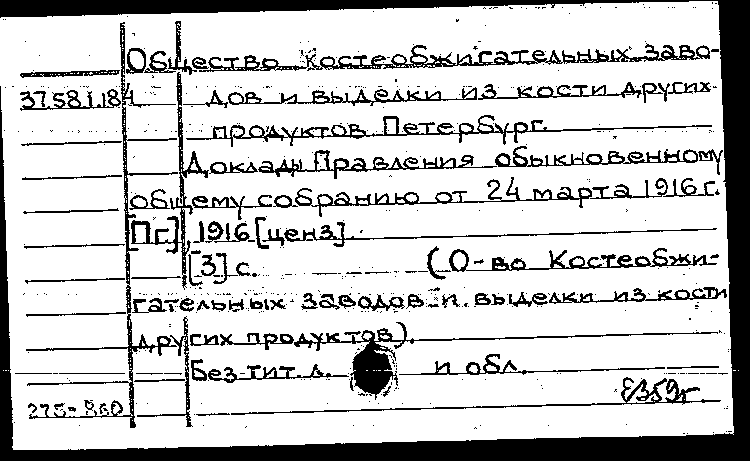 Общество Костеобжигательных заво-
37.58.1.184 дов и выделки из кости других
продуктов Петербург.
Доклады Правления обыкновенному
общему собранию от 24 марта 1916 г.
[Пг.], 1916 [ценз].
[3] с. (О-во Костеобжи-
гательных заводов и выделки из кости
других продуктов).
Без тит. л. и обл.
275-860